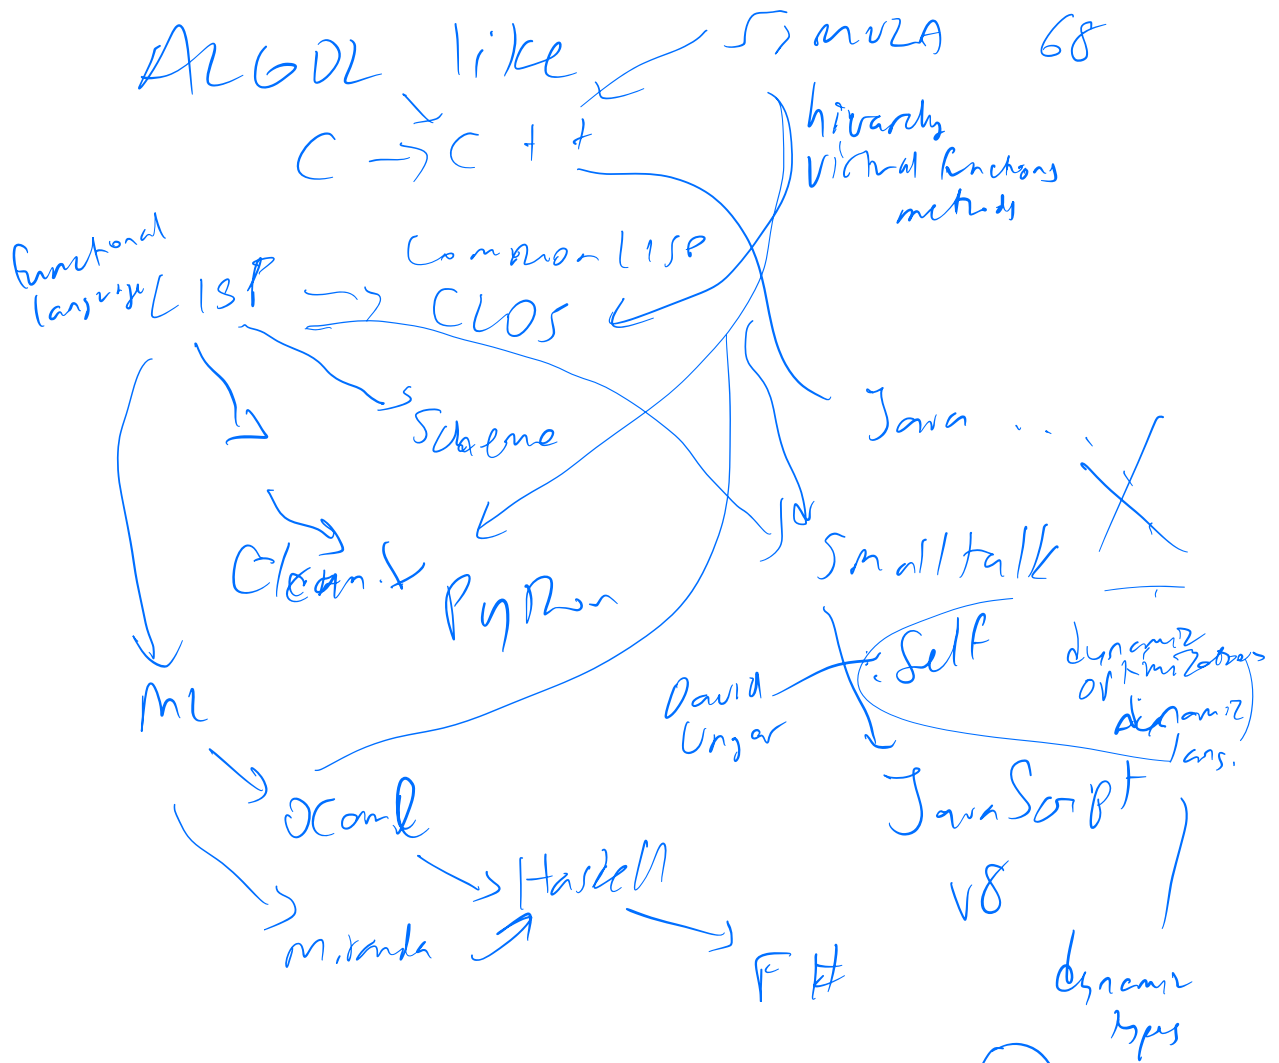 ALGOL like
SIMULA 68
C → C++
hirarchy
virtual functions
methods
functional
language
LISP
Common LISP
CLOS
Scheme
Java ...
Clean
Python
Smalltalk
Self
David
Ungar
dynamic
optimizations
dynamic
lang.
ML
OCaml
JavaScript
Haskell
V8
Miranda
F#
dynamic
types